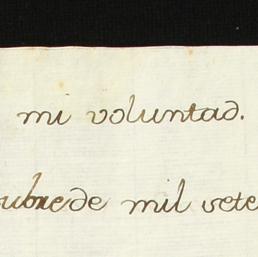 mi voluntad.
ubrede mil sete